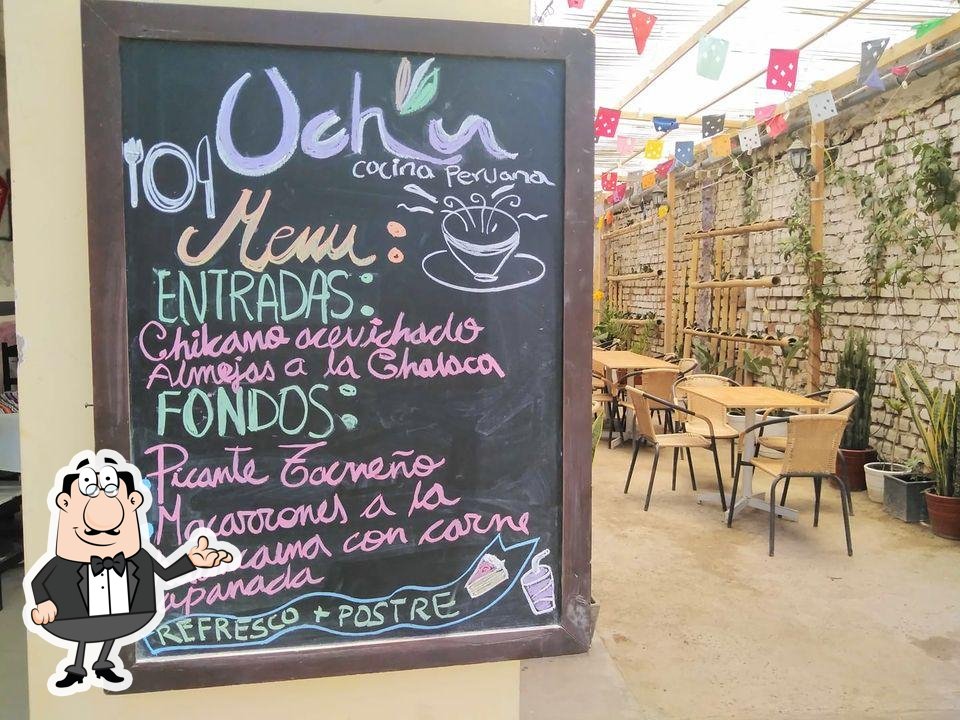 Uchu
cocina Peruana
Menu:
ENTRADAS:
Chilcano acevichado
Almejas a la Chalaca
FONDOS:
Picante Tacneño
Macarrones a la
con carne
apanada
REFRESCO + POSTRE